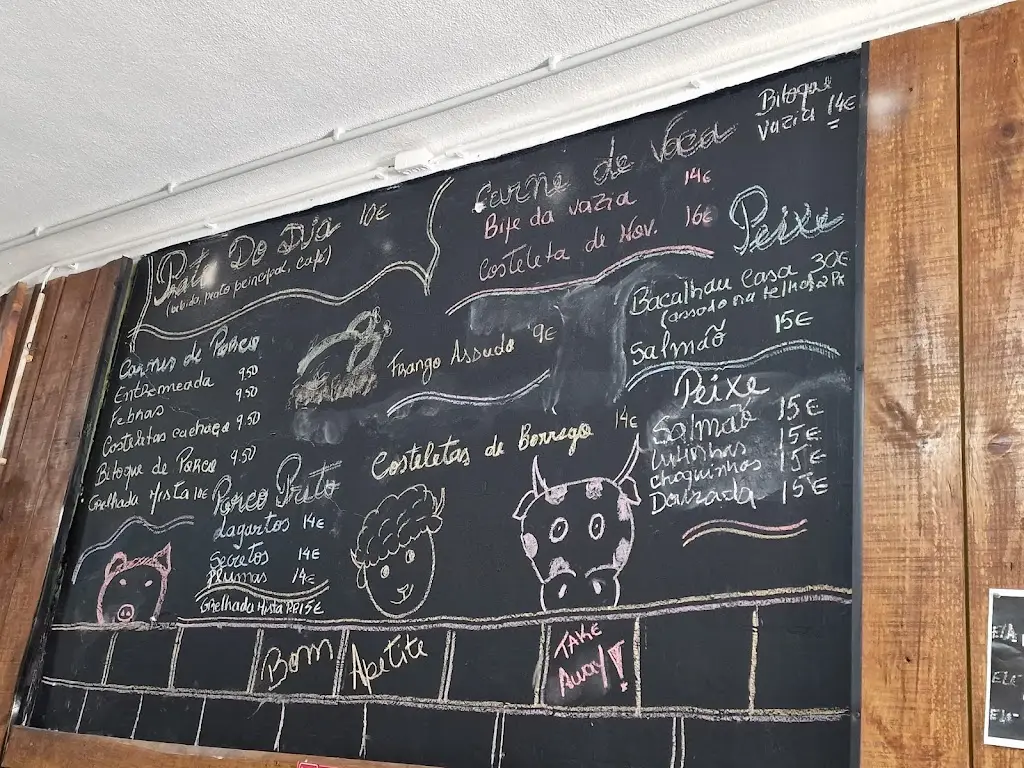 Prato Do Dia 10€
(bebida, prato principal, café)
Carnes de Porco
Entremeada 9.50
Febras 9.50
Costeletas cachaço 9.50
Bitoque de Porco 9.50
Grelhada Mista 10€
Porco Preto
Lagartos 14€
Secretos 14€
Plumas 14€
Grelhada Mista PP 15€
Frango Assado 9€
Costeletas de Borrego 14€
Carne de Vaca
Bife da vazia 14€
Costeleta de Nov. 16€
Bitoque
Vazia 14€
Peixe
Bacalhau Casa 30€
(assado na telha) 2 Px
Salmão 15€
Peixe
Salmão 15€
Lulinhas 15€
choquinhos 15€
Dourada 15€
Bom Apetite
TAKE
Away!